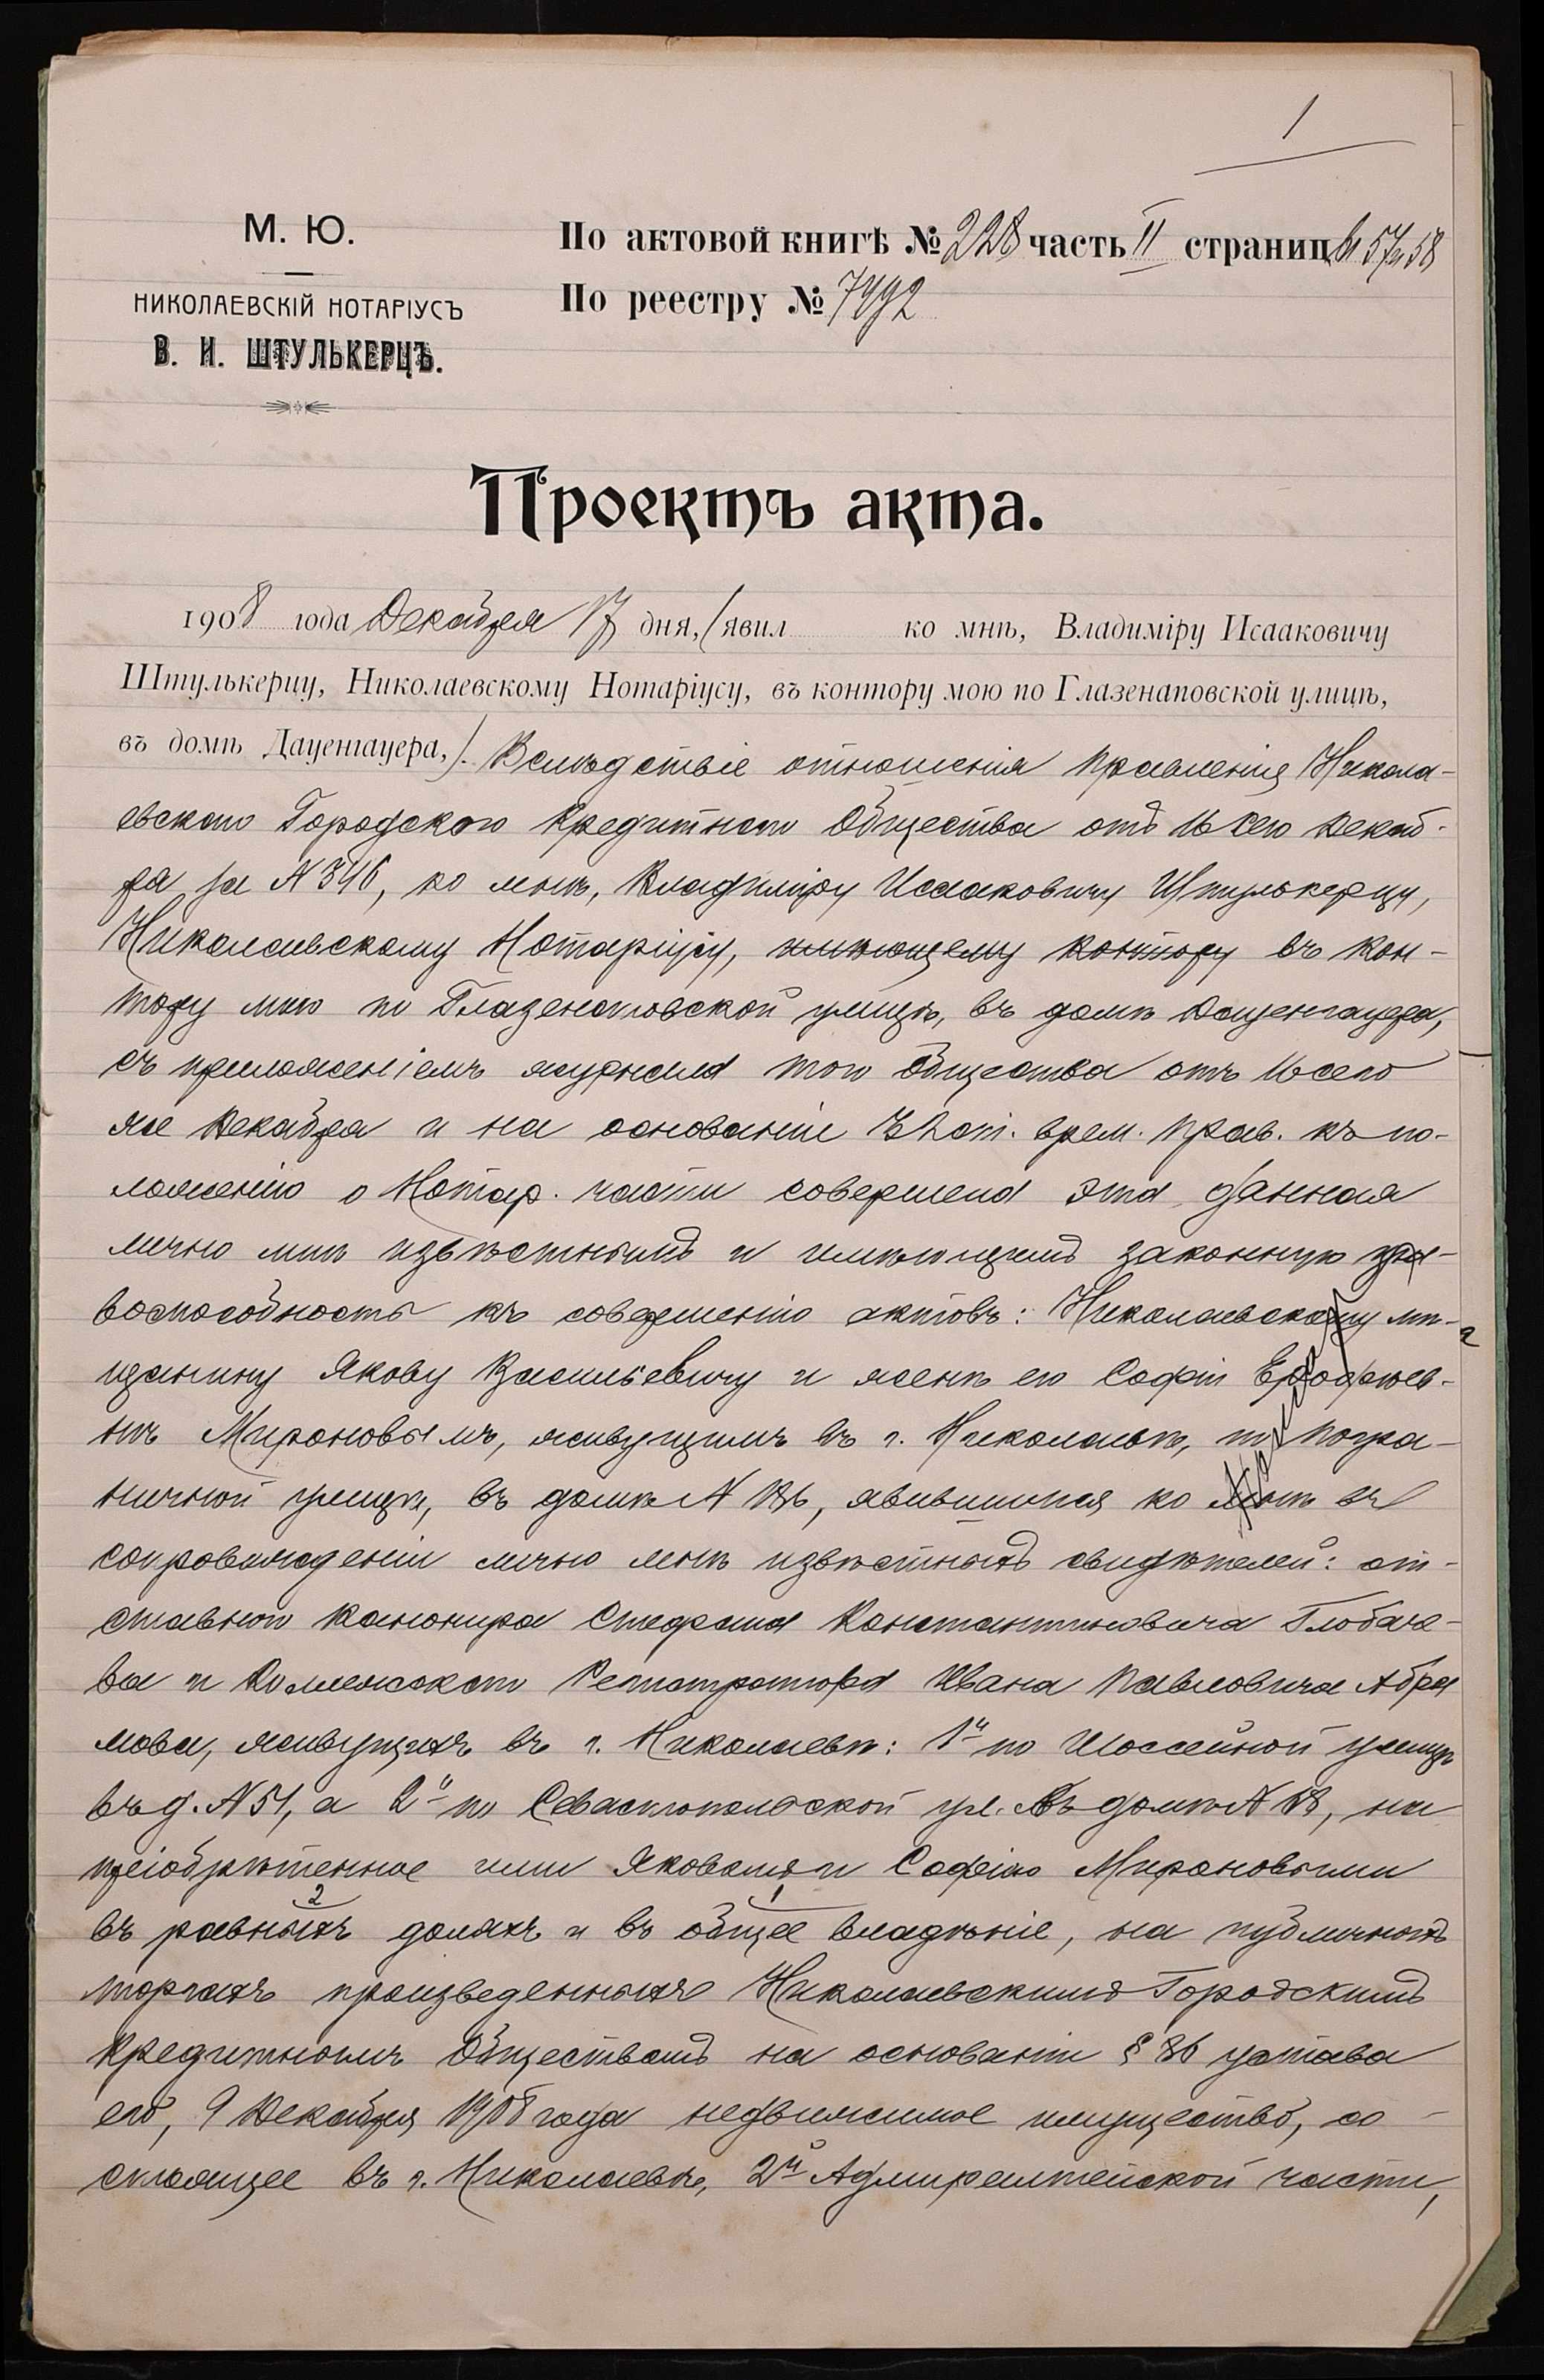 1
М. Ю.
НИКОЛАЕВСКІЙ НОТАРІУСЪ
В. И. ШТУЛЬКЕРЦЪ.
По актовой книгѣ № 228 часть II страницы 57 и 58
По реестру № 7492
Проектъ акта.
1908 года Декабря 17 дня, (явил ко мнѣ, Владиміру Исааковичу
Штулькерцу, Николаевскому Нотаріусу, въ контору мою по Глазенаповской улицѣ,
въ домѣ Дауенгауера,). Вслѣдствіе отношенія Правленія Никола-
евскаго Городского Кредитнаго Общества отъ 16 сего Декаб-
ря за N 346, ко мнѣ, Владиміру Исааковичу Штулькерцу,
Николаевскому Нотаріусу, имѣющему контору въ кон-
тору мою по Глазенаповской улицѣ, въ домѣ Дауенгауера,
съ приложеніемъ журнала того Общества отъ 16 сего
же Декабря и на основаніи ст. врем. прав. къ по-
ложенію о Нотар. части совершена эта данная
лично мнѣ извѣстнымъ и имѣющимъ законную пра-
воспособность къ совершенію актовъ: Николаевскому мѣ-
щанину Якову Васильевичу и женѣ его Софіи Ерофѣев-
нѣ Мироновымъ, живущимъ въ г. Николаевѣ, по Погра-
ничной улицѣ, въ домѣ N явившимся ко мнѣ въ
сопровожденіи лично мнѣ извѣстныхъ свидѣтелей: от-
ставного канонира Стефана Константиновича Глобаче-
ва и Коллежскаго Регистратора Ивана Павловича Абра
мова, живущихъ въ г. Николаевѣ: 1й по Шоссейной улицѣ
въ д. N 51, а 2й по Севастопольской ул. въ домѣ N 58, на
пріобрѣтенное ими Яковомъ и Софіею Мироновыми
2 1
въ равныхъ доляхъ и въ общее владѣніе, на публичныхъ
торгахъ произведенныхъ Николаевскимъ Городскимъ
Кредитнымъ Обществомъ на основаніи § 86 устава
его, 9 Декабря 1908 года недвижимое имущество, со-
стоящее въ г. Николаевѣ, 2й Адмиралтейской части,